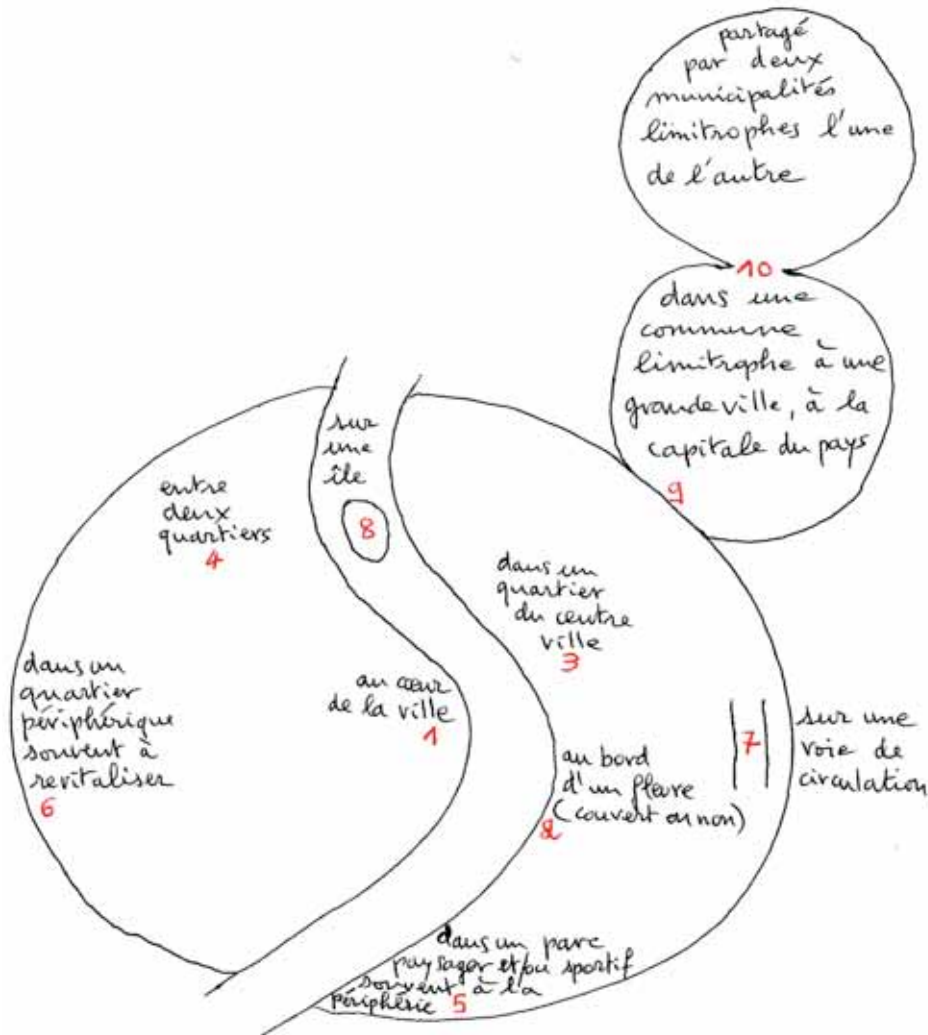 partagé
par deux
municipalités
limitrophes l'une
de l'autre
10
dans une
commune
limitrophe à une
grande ville, à la
capitale du pays
9
sur
une
île
8
entre
deux
quartiers
4
dans un
quartier
du centre
ville
3
dans un
quartier
périphérique
souvent à
revitaliser
6
au cœur
de la ville
1
au bord
d'un fleuve
(couvert ou non)
2
7
sur une
voie de
circulation
dans un parc
paysager et/ou sportif
souvent à la
périphérie
5